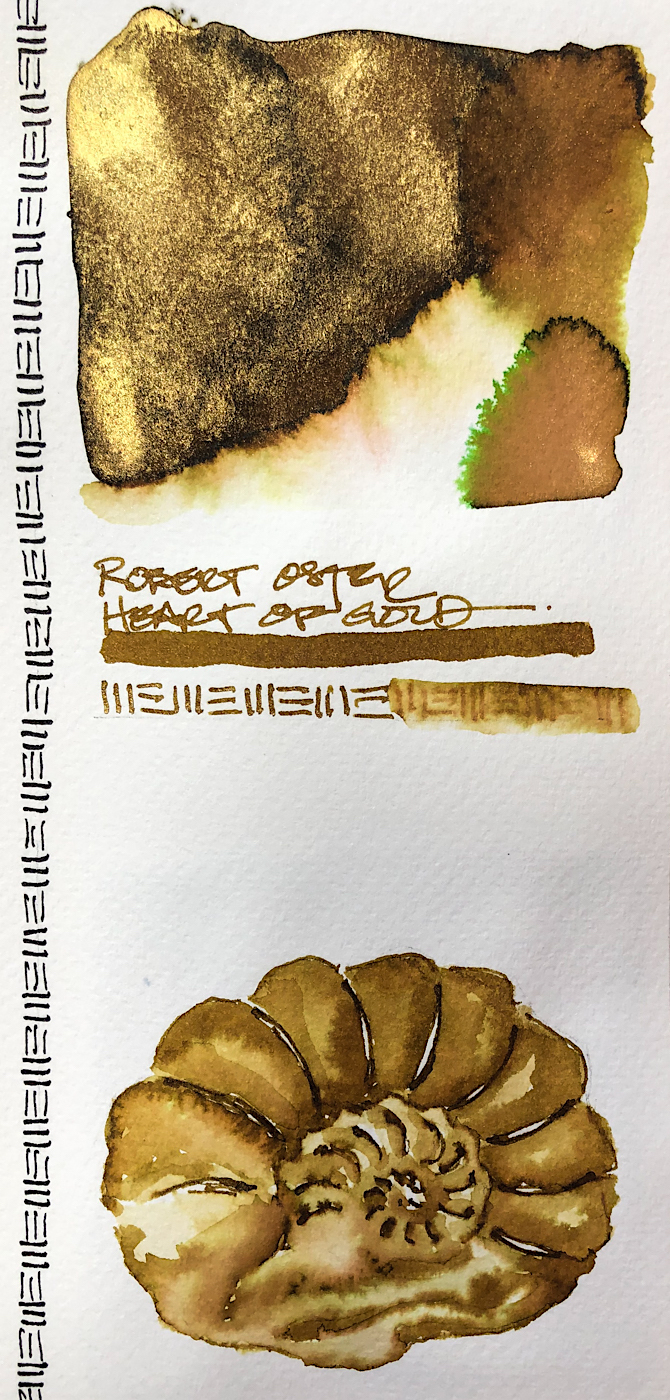 ROBERT OSTER
HEART OF GOLD